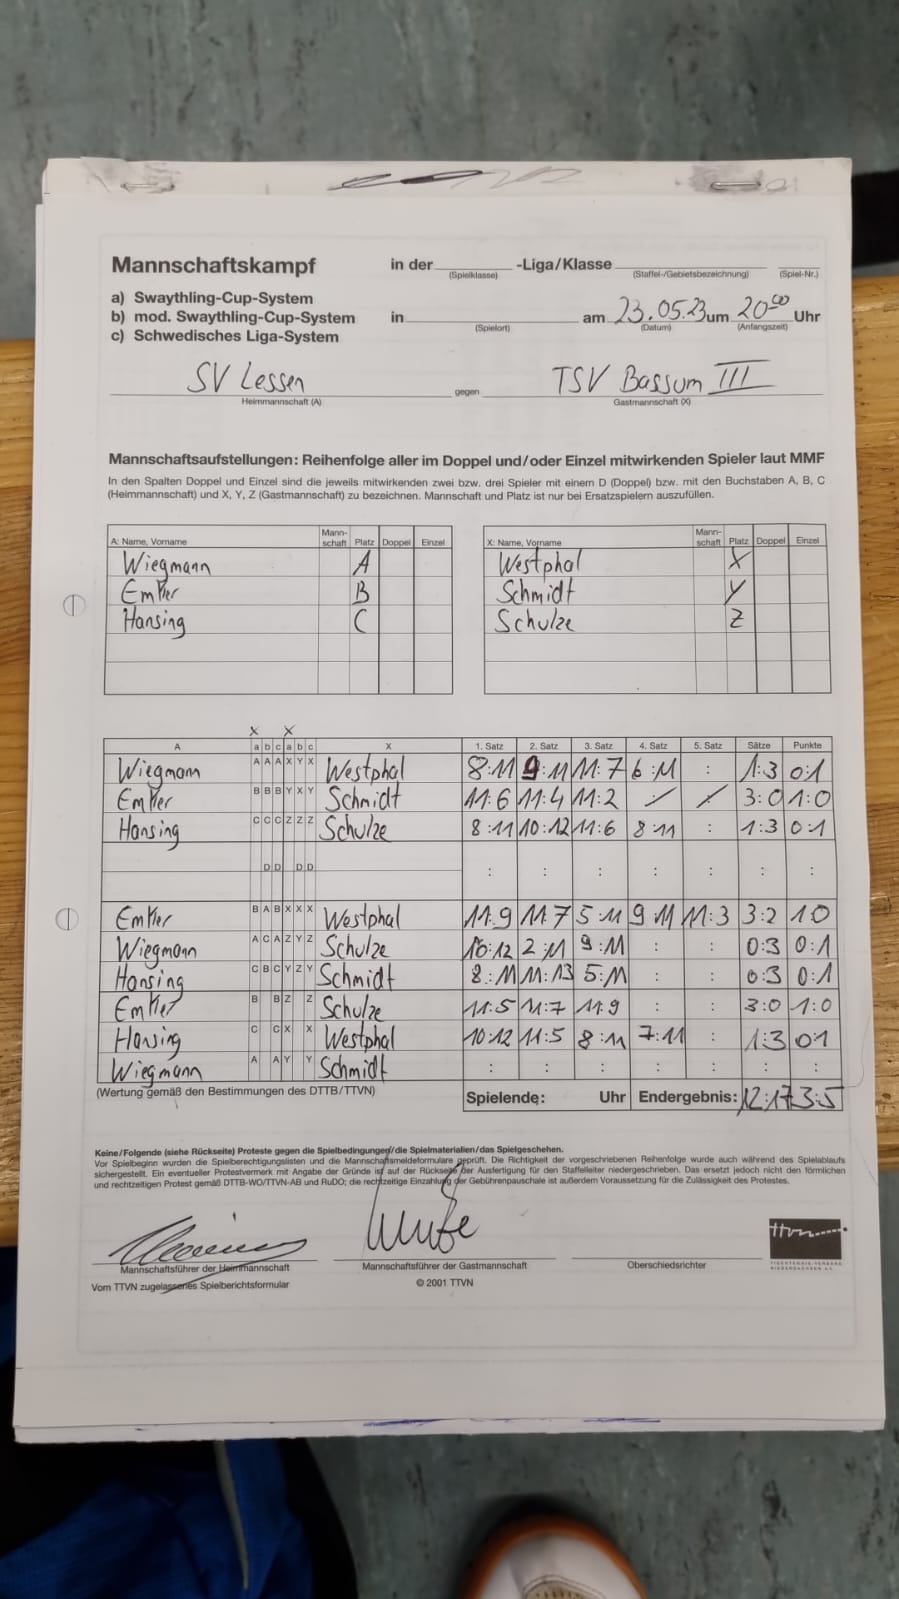 Mannschaftskampf in der -Liga/Klasse
(Spielklasse) (Staffel-/Gebietsbezeichnung) (Spiel-Nr.)
a) Swaythling-Cup-System
b) mod. Swaythling-Cup-System in am 23.05.23 um 20⁰⁰ Uhr
(Spielort) (Datum) (Anfangszeit)
c) Schwedisches Liga-System
SV Lessen gegen TSV Bassum III
Heimmannschaft (A) Gastmannschaft (X)
Mannschaftsaufstellungen: Reihenfolge aller im Doppel und/oder Einzel mitwirkenden Spieler laut MMF
In den Spalten Doppel und Einzel sind die jeweils mitwirkenden zwei bzw. drei Spieler mit einem D (Doppel) bzw. mit den Buchstaben A, B, C
(Heimmannschaft) und X, Y, Z (Gastmannschaft) zu bezeichnen. Mannschaft und Platz ist nur bei Ersatzspielern auszufüllen.
A: Name, Vorname Mann-schaft Platz Doppel Einzel X: Name, Vorname Mann-schaft Platz Doppel Einzel
Wiegmann A Westphal X
Emker B Schmidt Y
Hansing C Schulze Z
X X
A a b c a b c X 1. Satz 2. Satz 3. Satz 4. Satz 5. Satz Sätze Punkte
Wiegmann A A A X Y X Westphal 8:11 9:11 11:7 6:11 : 1:3 0:1
Emker B B B Y X Y Schmidt 11:6 11:4 11:2 3:0 1:0
Hansing C C C Z Z Z Schulze 8:11 10:12 11:6 8:11 : 1:3 0:1
D D D D : : : : : : :
Emker B A B X X X Westphal 11:9 11:7 5:11 9:11 11:3 3:2 1:0
Wiegmann A C A Z Y Z Schulze 10:12 2:11 9:11 : : 0:3 0:1
Hansing C B C Y Z Y Schmidt 8:11 11:13 5:11 : : 0:3 0:1
Emker B B Z Z Schulze 11:5 11:7 11:9 : : 3:0 1:0
Hansing C C X X Westphal 10:12 11:5 8:11 7:11 : 1:3 0:1
Wiegmann A A Y Y Schmidt : : : : : : :
(Wertung gemäß den Bestimmungen des DTTB/TTVN) Spielende: Uhr Endergebnis: 12:17 3:5
Keine/Folgende (siehe Rückseite) Proteste gegen die Spielbedingungen/die Spielmaterialien/das Spielgeschehen.
Vor Spielbeginn wurden die Spielberechtigungslisten und die Mannschaftsmeldeformulare geprüft. Die Richtigkeit der vorgeschriebenen Reihenfolge wurde auch während des Spielablaufs
sichergestellt. Ein eventueller Protestvermerk mit Angabe der Gründe ist auf der Rückseite der Ausfertigung für den Staffelleiter niedergeschrieben. Das ersetzt jedoch nicht den förmlichen
und rechtzeitigen Protest gemäß DTTB-WO/TTVN-AB und RuDO; die rechtzeitige Einzahlung der Gebührenpauschale ist außerdem Voraussetzung für die Zulässigkeit des Protestes.
ttvn
Mannschaftsführer der Heimmannschaft Mannschaftsführer der Gastmannschaft Oberschiedsrichter
TISCHTENNIS-VERBAND
NIEDERSACHSEN e.V.
Vom TTVN zugelassenes Spielberichtsformular © 2001 TTVN